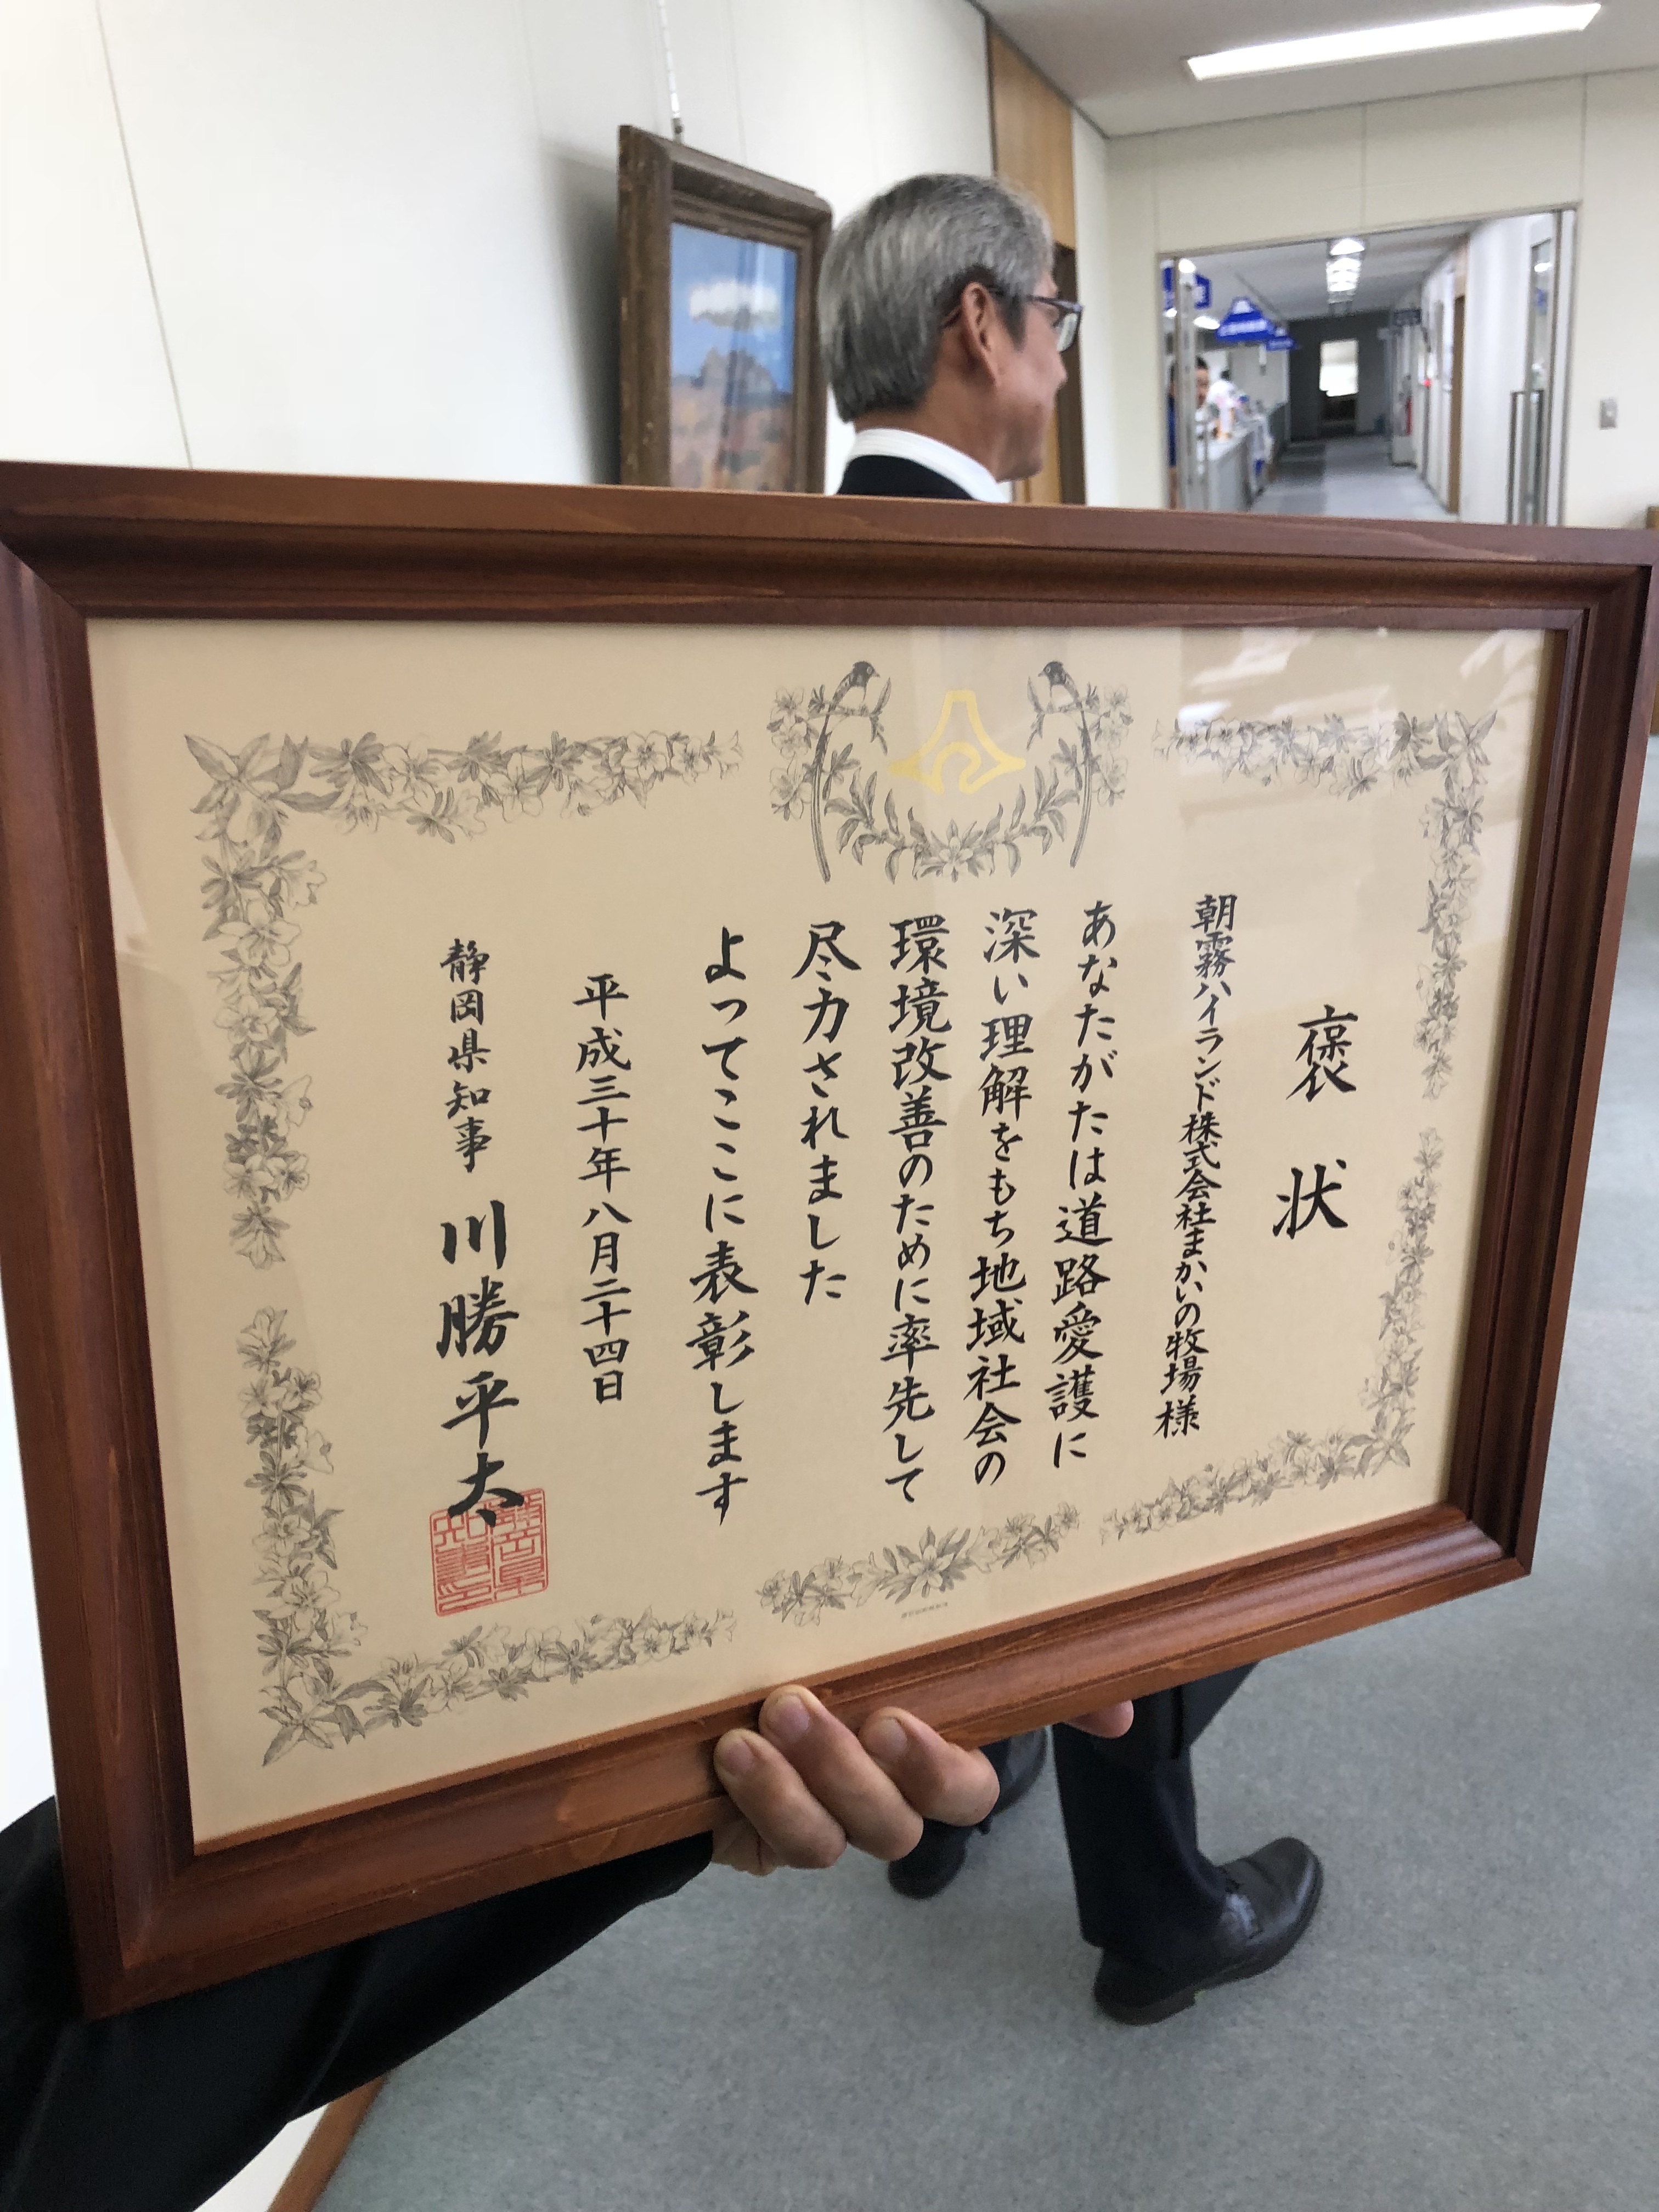 褒状
朝霧ハイランド株式会社まかいの牧場様
あなたがたは道路愛護に
深い理解をもち地域社会の
環境改善のために率先して
尽力されました
よってここに表彰します
平成三十年八月二十四日
静岡県知事 川勝平太
静岡県知事之印